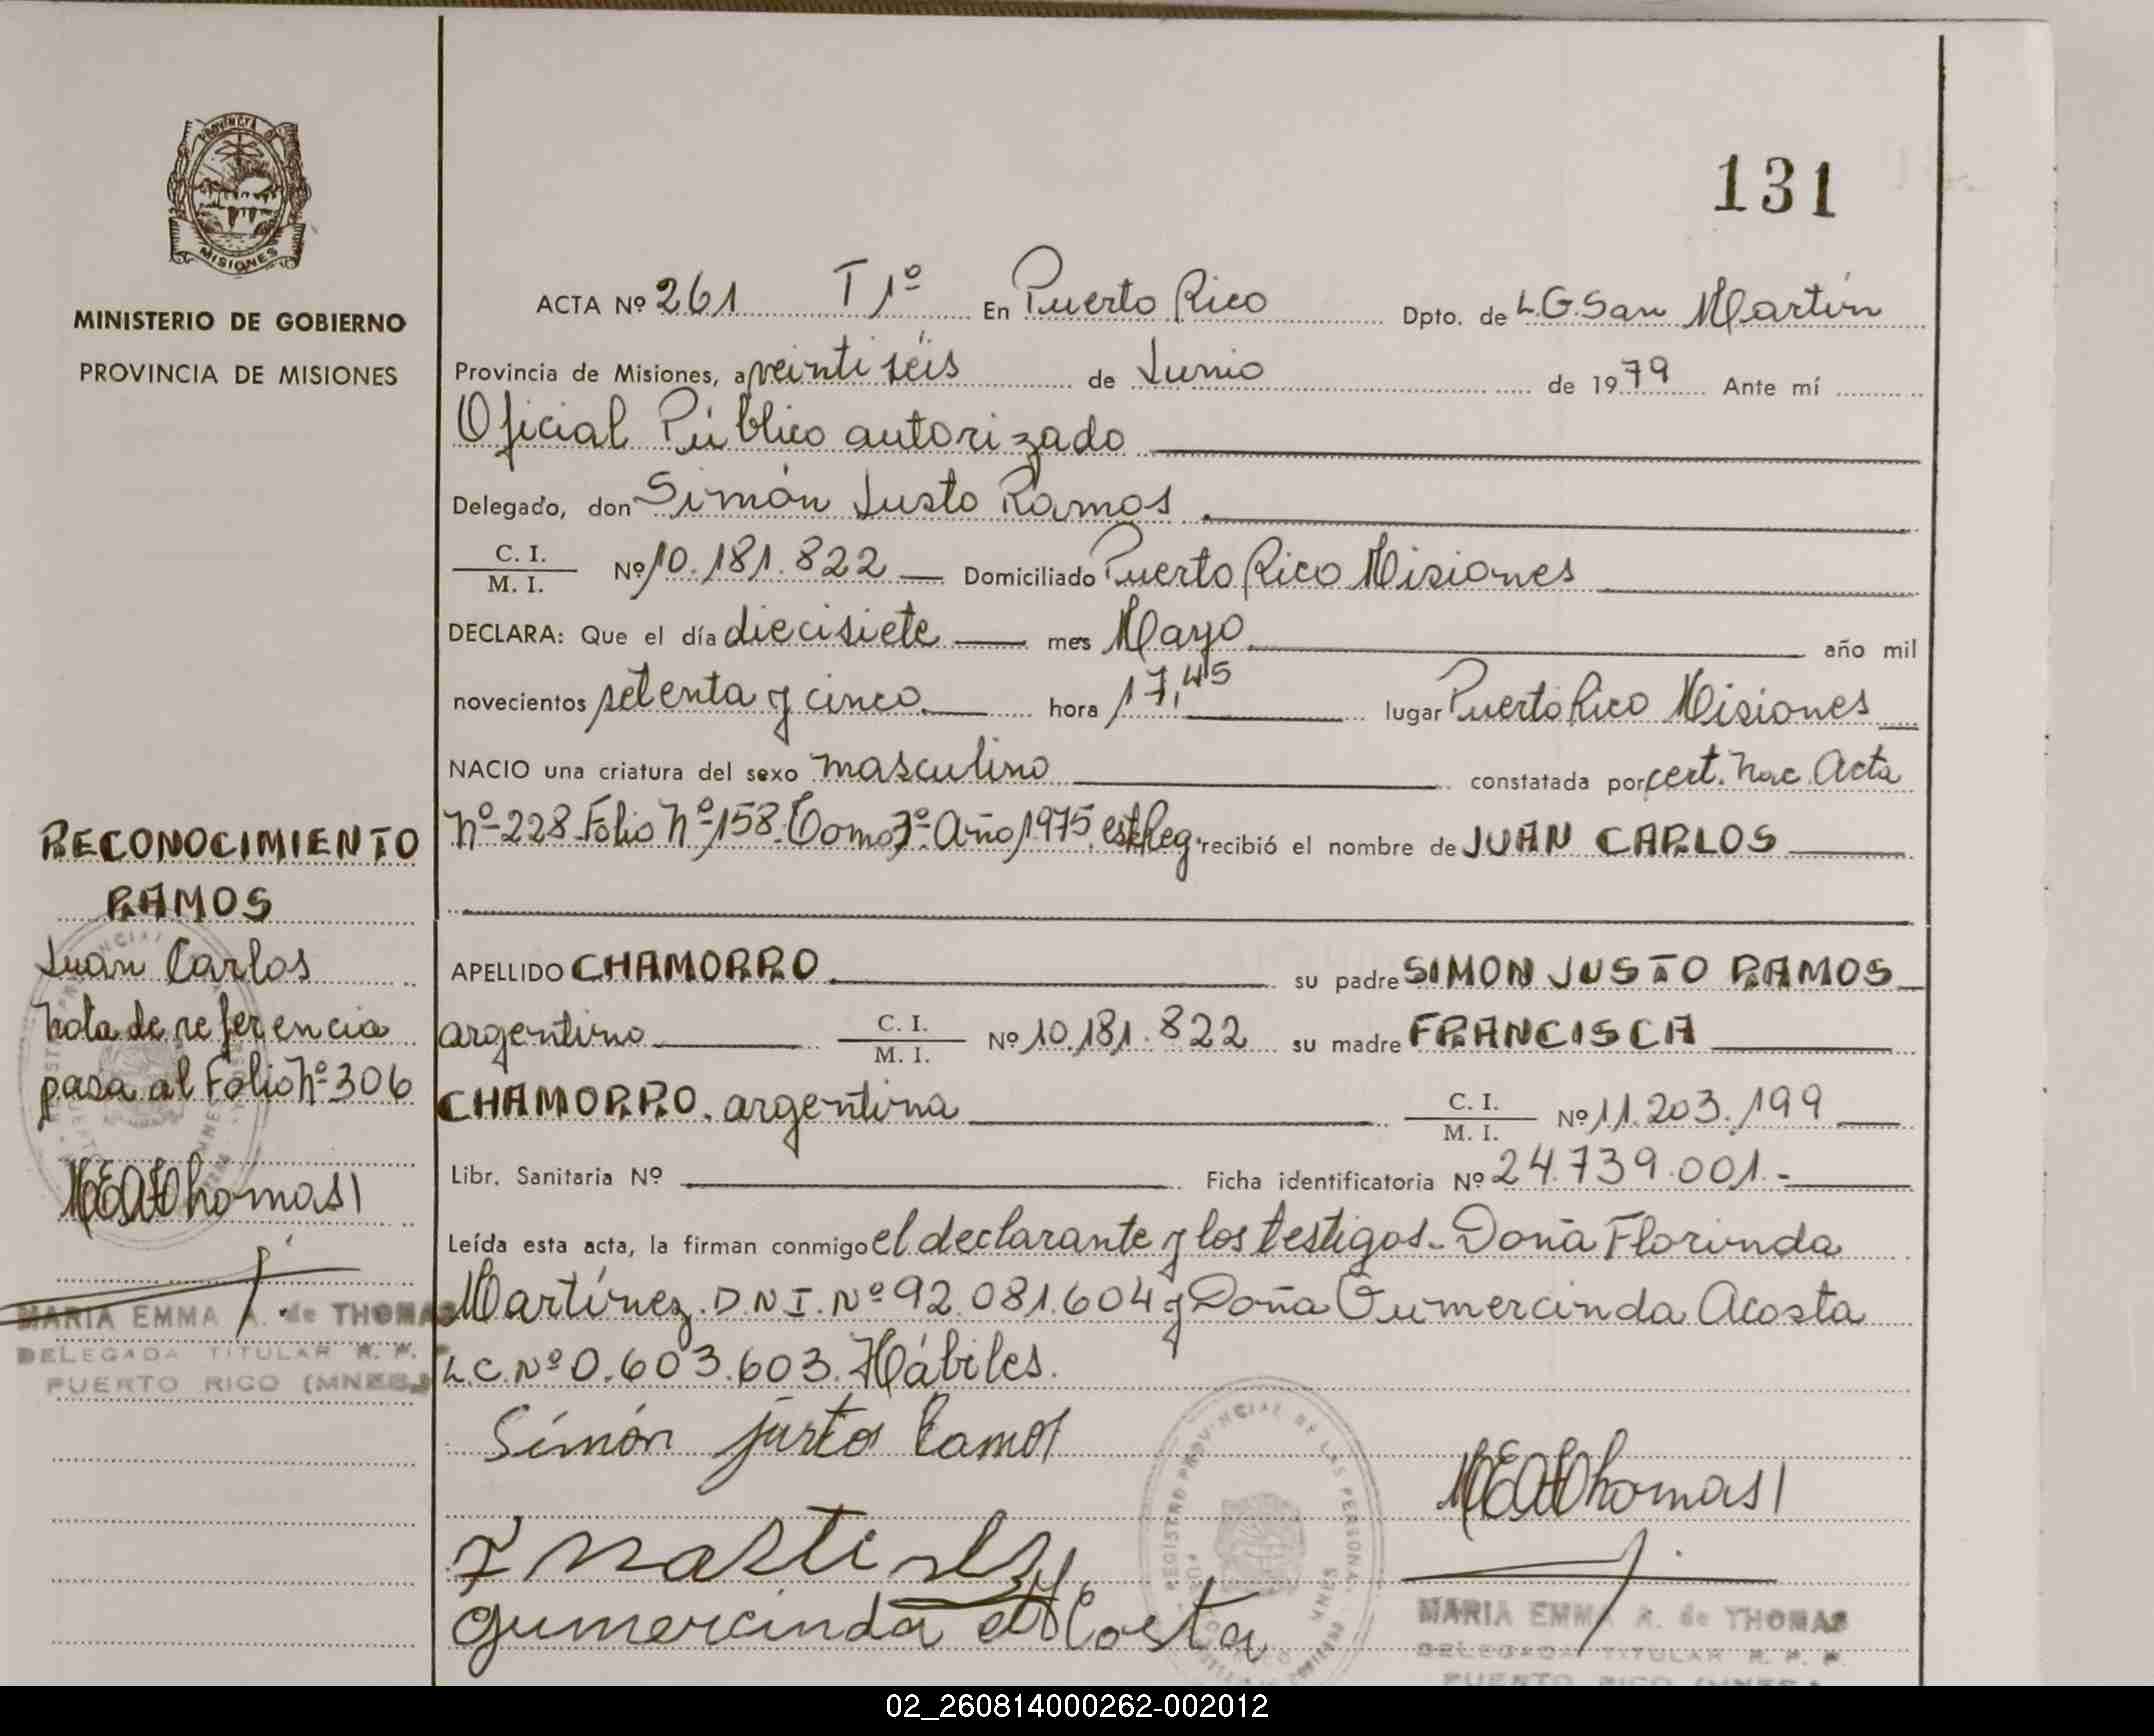 131
PROVINCIA DE
MISIONES
MINISTERIO DE GOBIERNO
PROVINCIA DE MISIONES
ACTA Nº 261 T 1º En Puerto Rico Dpto. de L.G. San Martín
Provincia de Misiones, a veinti séis de Junio de 1979 Ante mí
Oficial Público autorizado
Delegado, don Simón Justo Ramos
C. I.
M. I. Nº 10.181.822 Domiciliado Puerto Rico Misiones
DECLARA: Que el día diecisiete mes Mayo año mil
novecientos setenta y cinco hora 17,45 lugar Puerto Rico Misiones
NACIO una criatura del sexo masculino constatada por cert. Nac. Acta
Nº 228 Folio Nº 158. Tomo Año 1975 recibió el nombre de JUAN CARLOS
APELLIDO CHAMORRO su padre SIMON JUSTO RAMOS
argentino C. I.
M. I. Nº 10.181.822 su madre FRANCISCA
CHAMORRO. argentina C. I.
M. I. Nº 11.203.199
Libr. Sanitaria Nº Ficha identificatoria Nº 24.739.001.-
Leída esta acta, la firman conmigo el declarante y los testigos. Doña Florinda
Martínez. D.N.I. Nº 92.081.604 y Doña Gumercinda Acosta
L.C. Nº 0.603.603. Hábiles.
Simón justo Ramos
F Martinez
gumercinda Acosta
MEAThomas
MARIA EMMA A. de THOMAS
DELEGADA TITULAR R. P. P.
PUERTO RICO (MNES.)
REGISTRO PROVINCIAL DE LAS PERSONAS
RECONOCIMIENTO
RAMOS
Juan Carlos
Nota de referencia
pasa al Folio Nº 306
MEAThomas
MARIA EMMA A. de THOMAS
DELEGADA TITULAR R. P. P.
PUERTO RICO (MNES.)
02_260814000262-002012